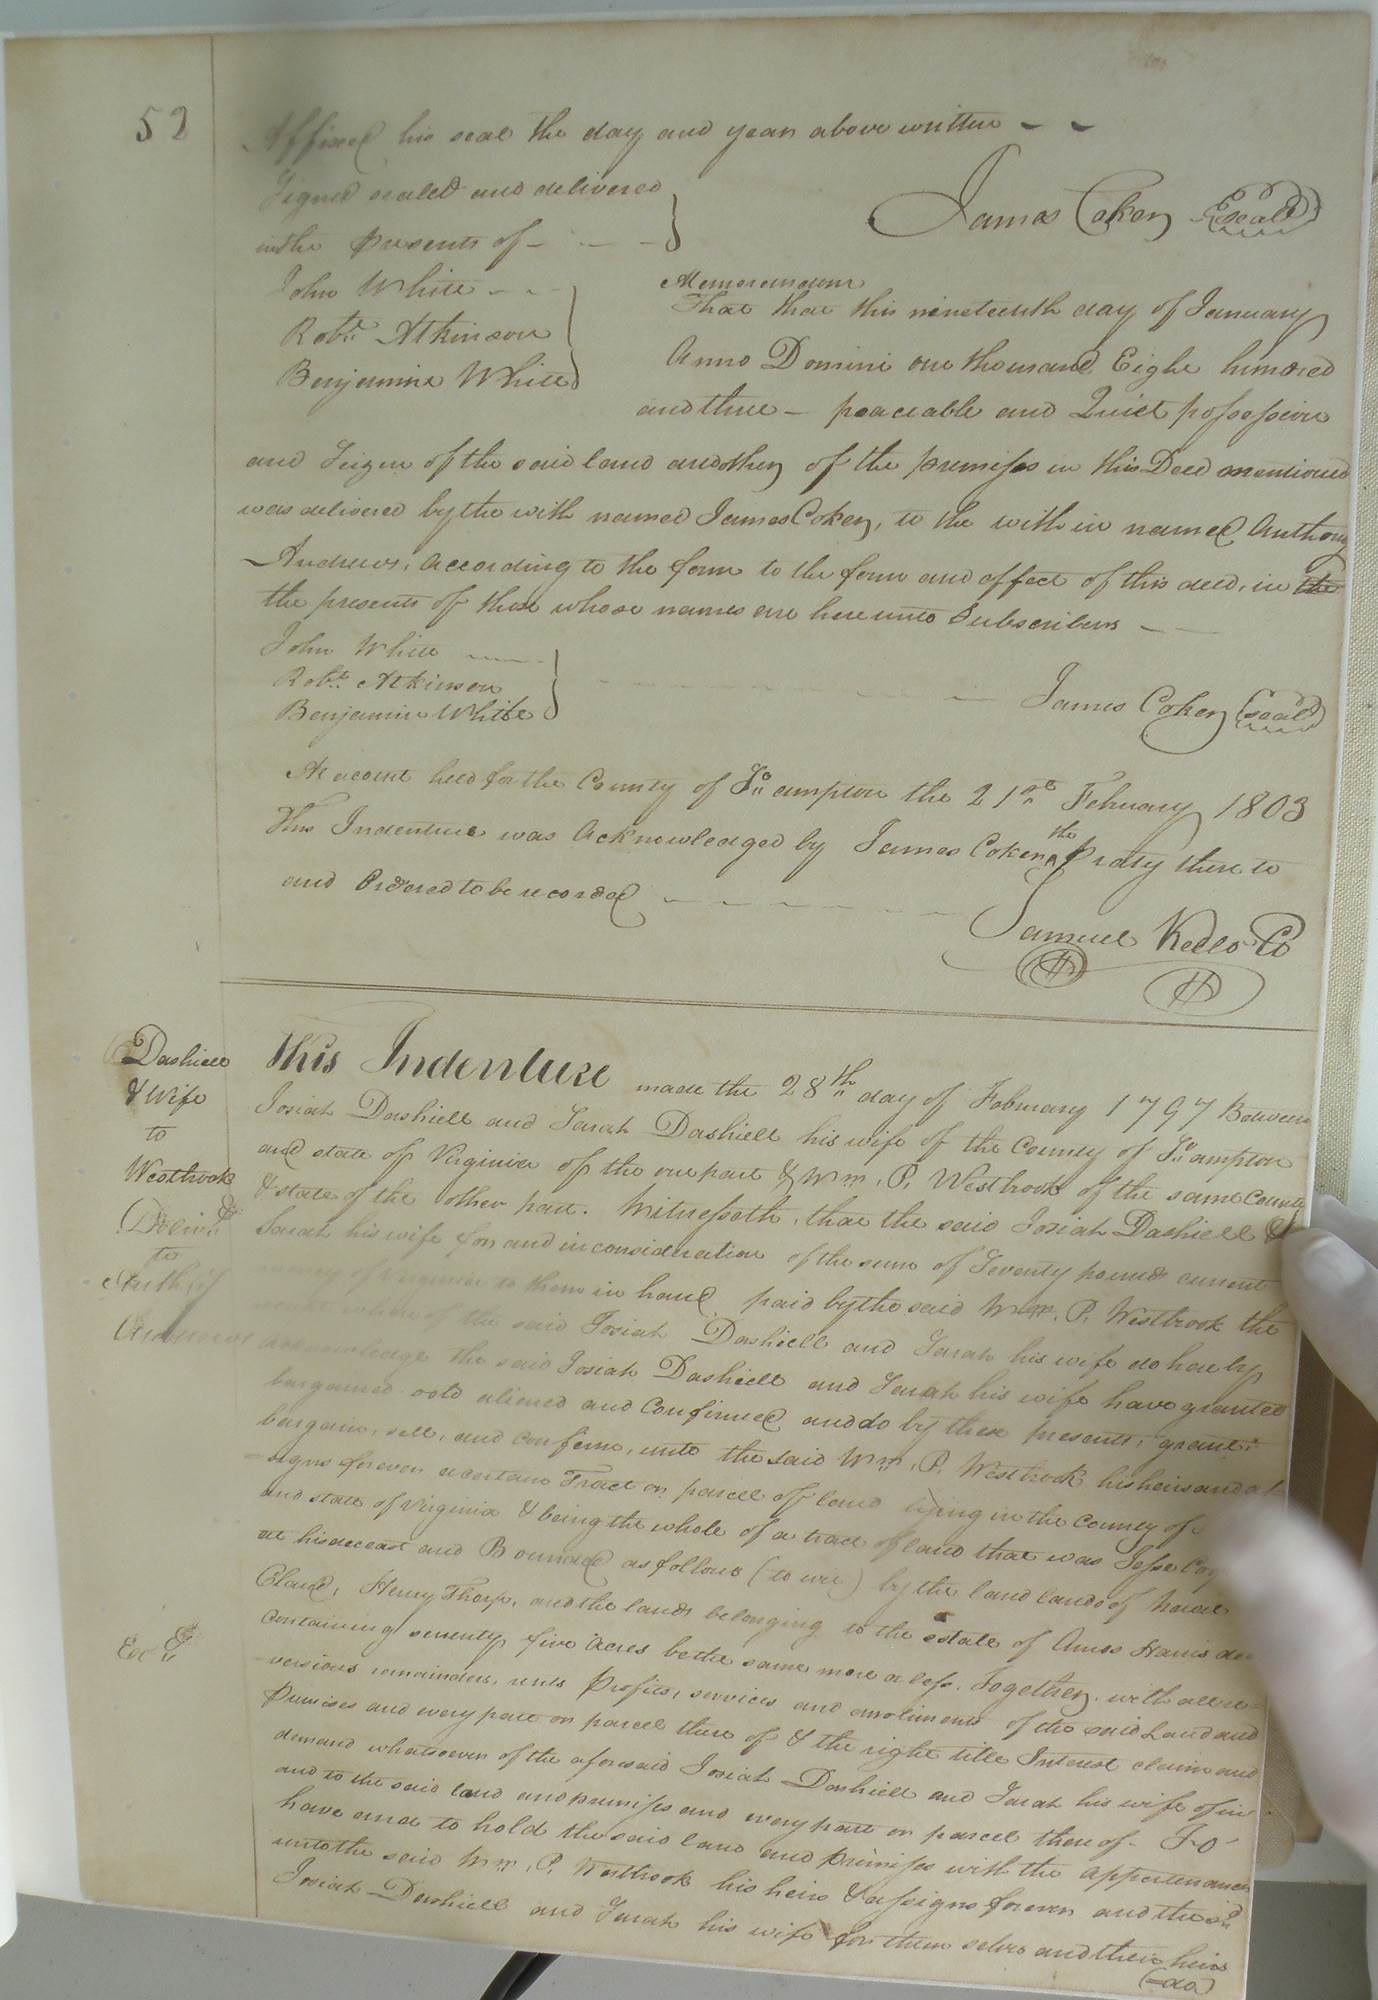 52
Affixed his seal the day and year above written
Signed sealed and delivered
in the presents of
James Coker (seal)
John White
Robt. Atkinson
Benjamine White
Memorandum
That that this nineteenth day of January
Anno Domini one thousand Eight hundred
and three - peaceable and Quiet possession
and Seizen of the said land and other of the premises in this Deed mentioned
was delivered by the with named James Coker, to the with in named Anthony
Andrews, according to the form to the form and effect of this deed, in the
the presents of those whose names are here unto Subscribers
John White
Robt. Atkinson
Benjamin White
James Coker (seal)
At a court held for the County of So.ampton the 21st February 1803
This Indenture was Acknowledged by James Coker the Praty there to
and Ordered to be recorded
Samuel Kello Co
Dashiell
& Wife
to
Westbrook
Deliv.d
to
Anthy
Andrews
Exd.
This Indenture made the 28th day of February 1797 Between
Josiah Dashiell and Sarah Dashiell his wife of the County of So.ampton
and state of Virginia of the one part & Wm. P. Westbrook of the same County
& state of the other part. Witnesseth, that the said Josiah Dashiell &
Sarah his wife for and in consideration of the sum of Seventy pounds current
money of Virginia to them in hand paid by the said Wm. P. Westbrook the
where of the said Josiah Dashiell and Sarah his wife do hereby
acknowledge the said Josiah Dashiell and Sarah his wife have granted
bargained sold aliened and Confirmed and do by these presents, grant,
bargain, sell, and confirm, unto the said Wm. P. Westbrook his heirs and as
-signs forever a certain Tract or parcel of land lying in the County of
and state of Virginia & being the whole of a tract of land that was Jesse
at his decease and Bounded as follows (to wit) by the land lands of
Claud, Henry Thorp, and the lands belonging to the estate of Amos Harris
Containing seventy five acres be the same more or less. Together with all re-
versions remainders, rents Profits, services and emoliments of the said Land and
Premises and every part or parcel there of & the right title Interest claim and
demand whatsoever of the aforesaid Josiah Dashiell and Sarah his wife of in
and to the said land and premises and every part or parcel there of - To
have and to hold the said land and premises with the appertenances
unto the said Wm. P. Westbrook his heirs & assigns forever and the sd
Josiah Dashiell and Sarah his wife for them selves and their heirs
(-do)